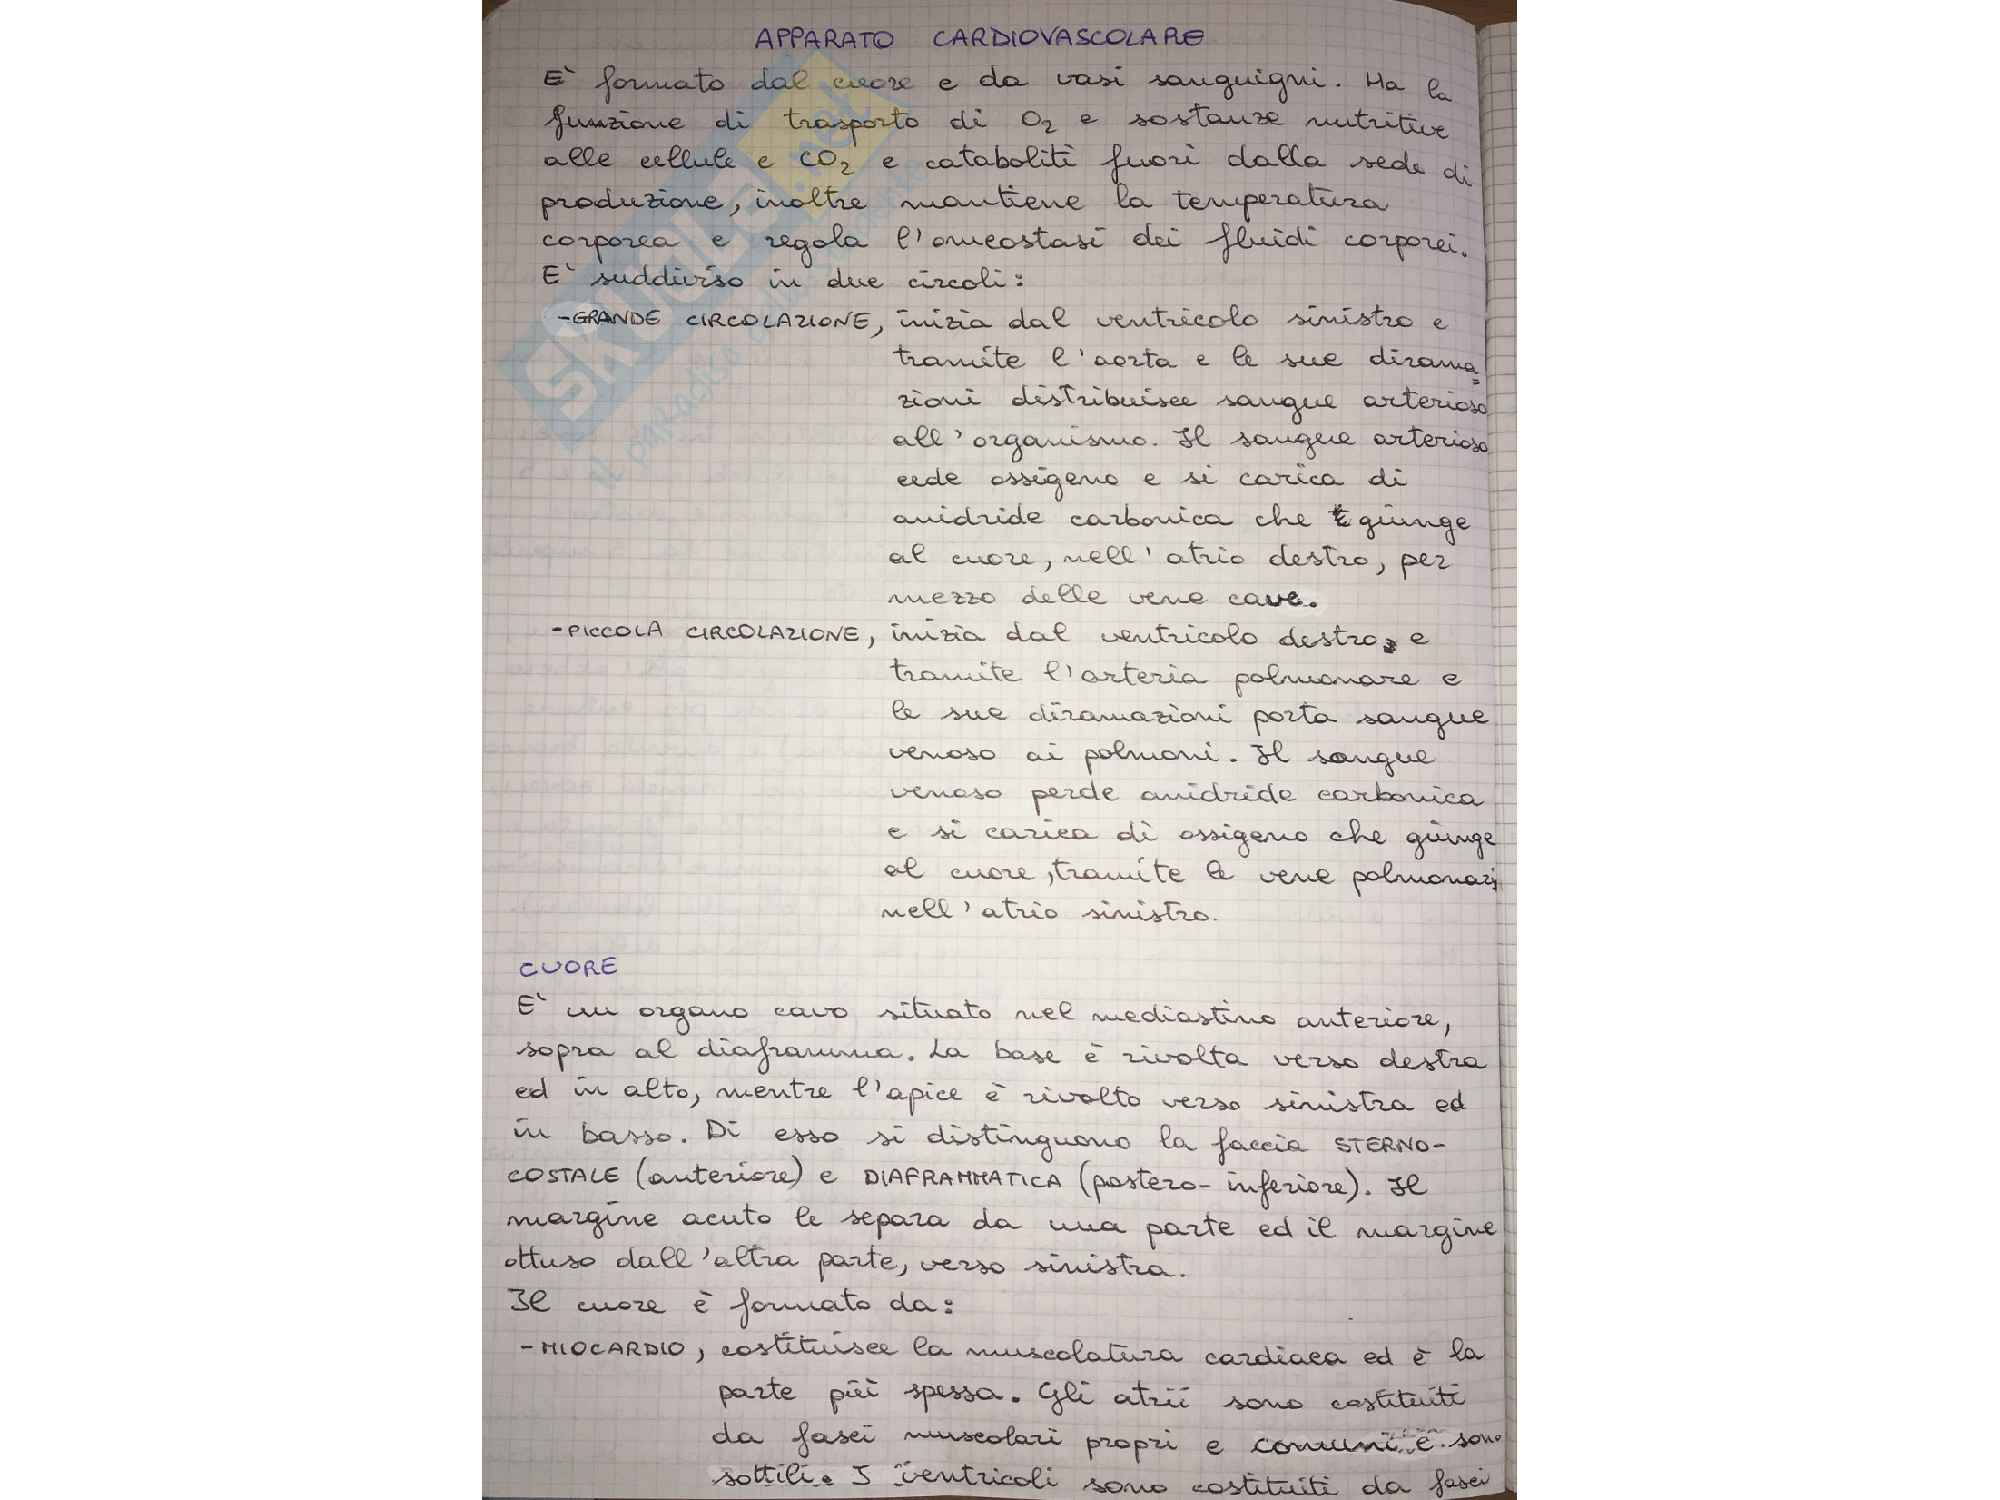 APPARATO CARDIOVASCOLARE
E' formato dal cuore e da vasi sanguigni. Ha la
funzione di trasporto di O2 e sostanze nutritive
alle cellule e CO2 e cataboliti fuori dalla sede di
produzione, inoltre mantiene la temperatura
corporea e regola l'omeostasi dei fluidi corporei.
E' suddiviso in due circoli:
-GRANDE CIRCOLAZIONE, inizia dal ventricolo sinistro e
tramite l'aorta e le sue dirama=
zioni distribuisce sangue arterioso
all'organismo. Il sangue arterioso
cede ossigeno e si carica di
anidride carbonica che giunge
al cuore, nell'atrio destro, per
mezzo delle vene cave.
-PICCOLA CIRCOLAZIONE, inizia dal ventricolo destro e
tramite l'arteria polmonare e
le sue diramazioni porta sangue
venoso ai polmoni. Il sangue
venoso perde anidride carbonica
e si carica di ossigeno che giunge
al cuore, tramite le vene polmonari
nell'atrio sinistro.
CUORE
E' un organo cavo situato nel mediastino anteriore,
sopra al diaframma. La base è rivolta verso destra
ed in alto, mentre l'apice è rivolto verso sinistra ed
in basso. Di esso si distinguono la faccia STERNO-
COSTALE (anteriore) e DIAFRAMMATICA (postero-inferiore). Il
margine acuto le separa da una parte ed il margine
ottuso dall'altra parte, verso sinistra.
Il cuore è formato da:
-MIOCARDIO, costituisce la muscolatura cardiaca ed è la
parte più spessa. Gli atrii sono costituiti
da fasci muscolari propri e comuni e sono
sottili. I ventricoli sono costituiti da fasci
SKUOLA.net
il paradiso dello studente